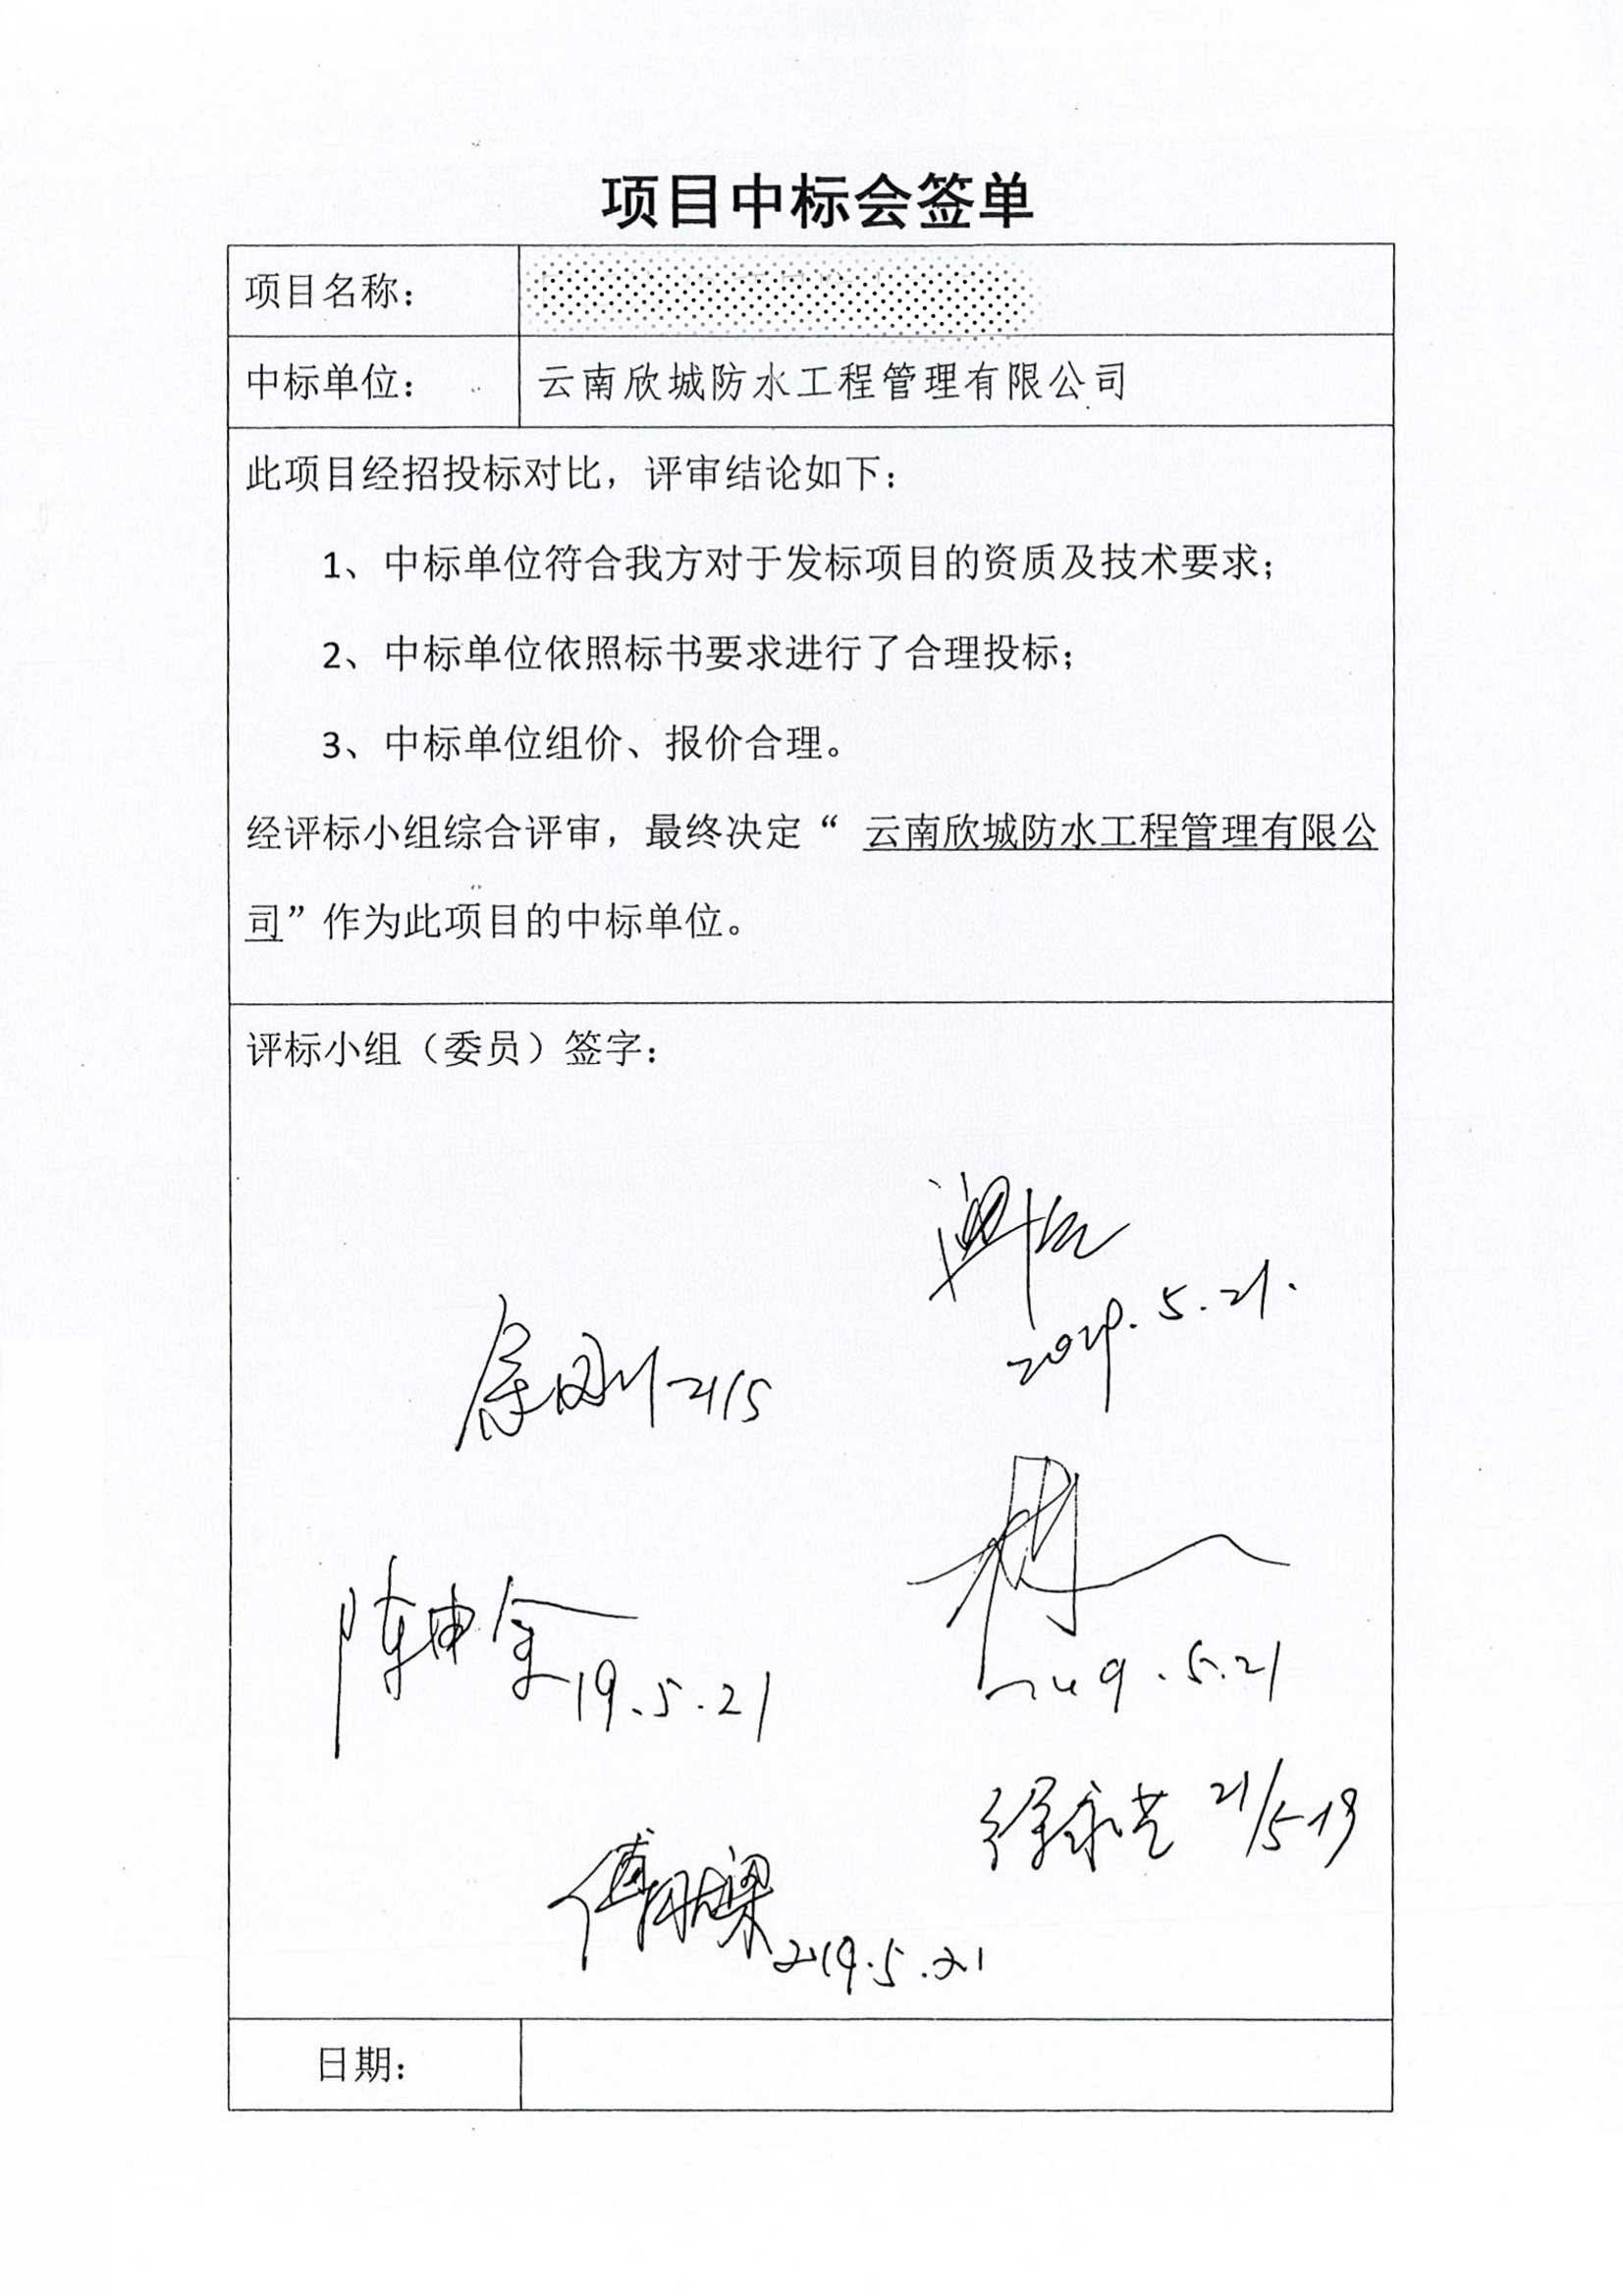 项目中标会签单
项目名称：
中标单位： 云南欣城防水工程管理有限公司
此项目经招投标对比，评审结论如下：
1、中标单位符合我方对于发标项目的资质及技术要求；
2、中标单位依照标书要求进行了合理投标；
3、中标单位组价、报价合理。
经评标小组综合评审，最终决定“ 云南欣城防水工程管理有限公
司”作为此项目的中标单位。
评标小组（委员）签字：
2019.5.21.
21/5
陈申金 19.5.21
2019.5.21
徐永芝 21/5 19
2019.5.21
日期：